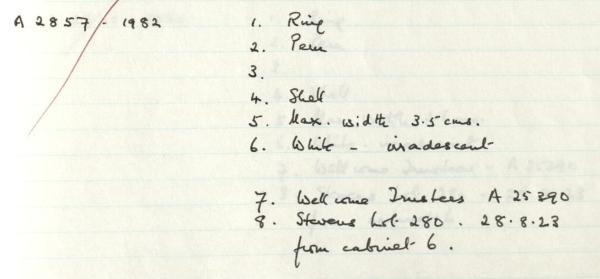 A 2857 - 1982
1. Ring
2. Peru
3.
4. Shell
5. Max. width 3.5 cms.
6. White - iradescent
7. Wellcome Trustees A 25390
8. Stevens Lot 280 . 28.8.23
from cabinet 6.